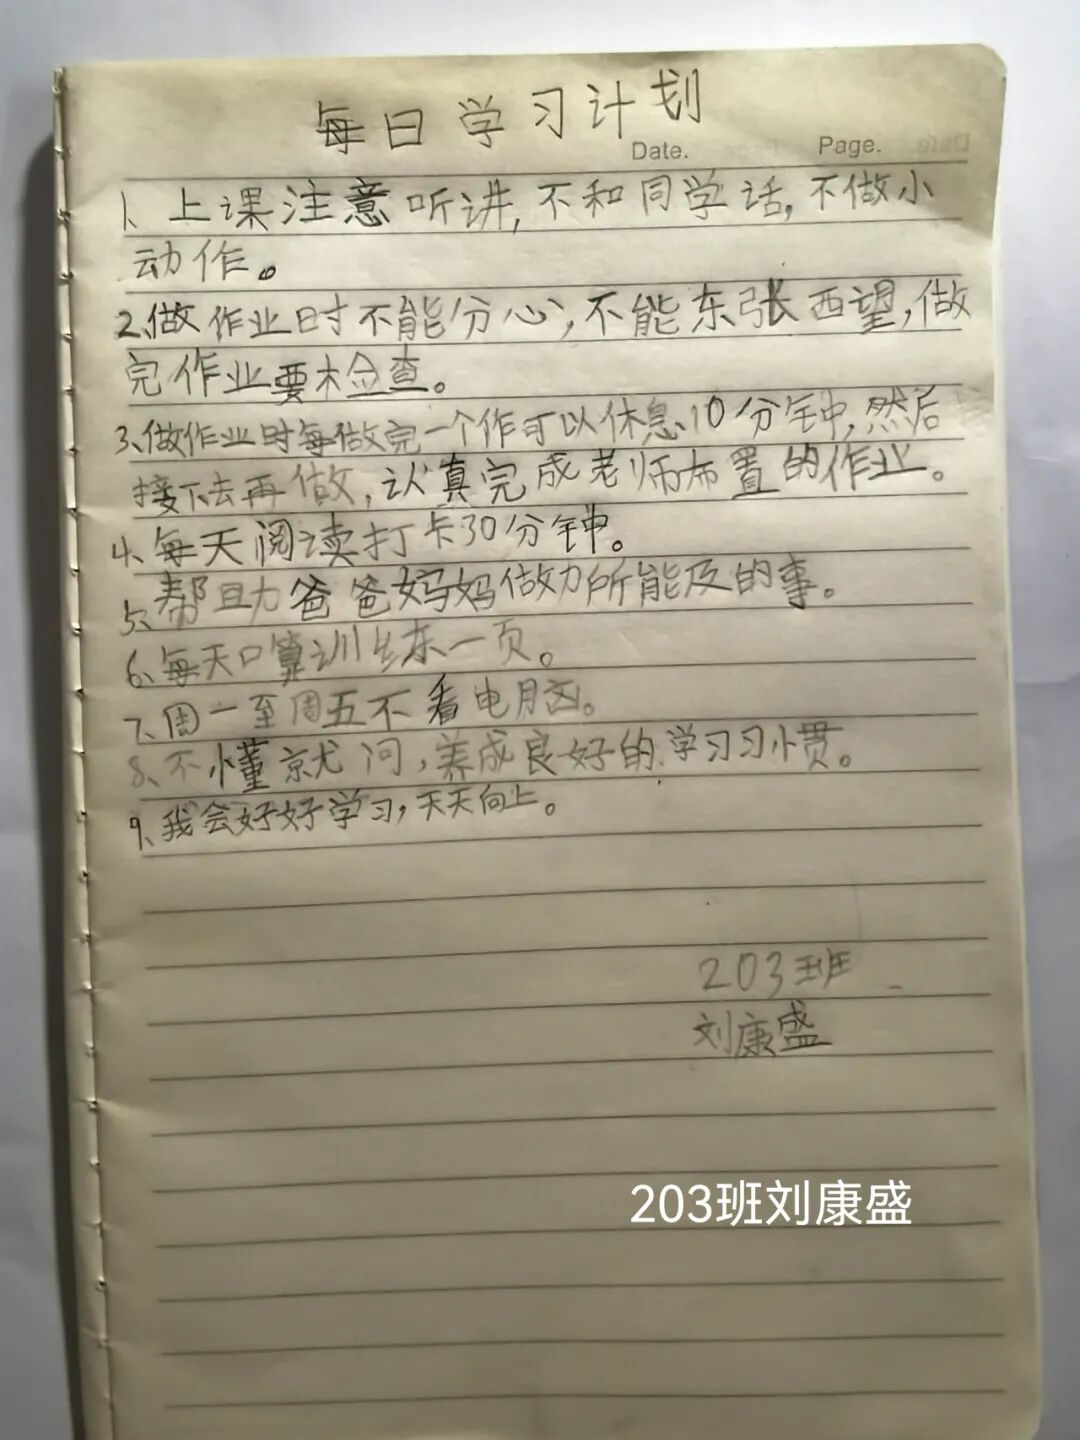 每日学习计划
Date. Page.
1、上课注意听讲,不和同学话,不做小
动作。
2、做作业时不能分心,不能东张西望,做
完作业要检查。
3、做作业时每做完一个作可以休息10分钟,然后
接下去再做,认真完成老师布置的作业。
4、每天阅读打卡30分钟。
5、帮助爸爸妈妈做力所能及的事。
6、每天口算训练一页。
7、周一至周五不看电脑。
8、不懂就问,养成良好的学习习惯。
9、我会好好学习,天天向上。
203班
刘康盛
203班刘康盛